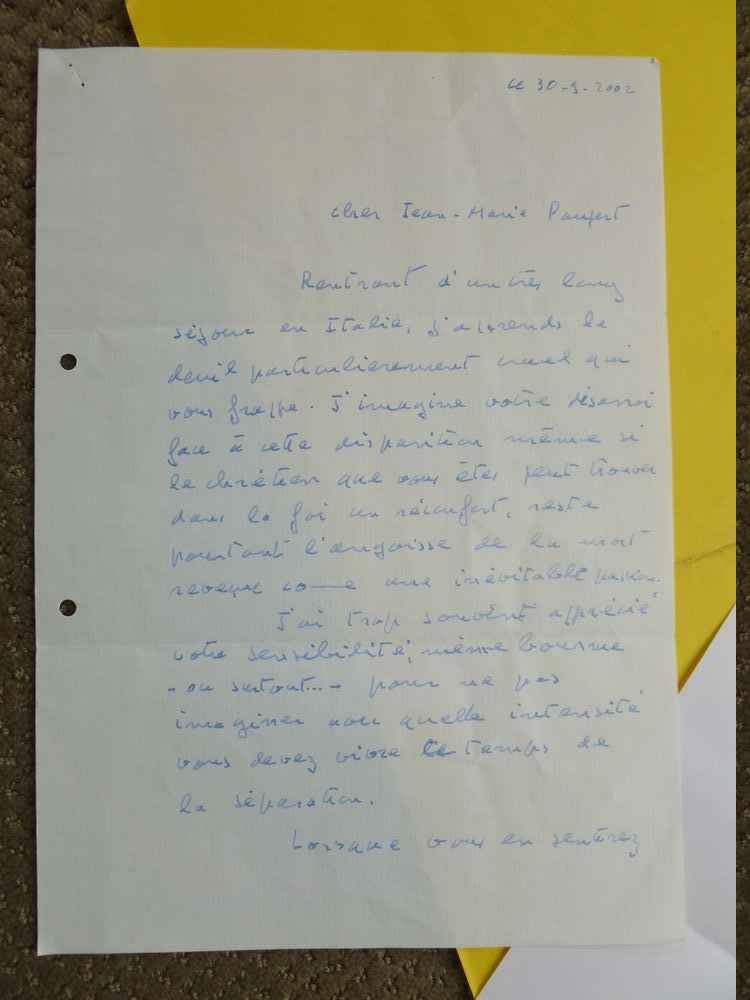 Le 30-9-2002
Cher Jean-Marie Paupert
Rentrant d'un très long
séjour en Italie, j'apprends le
deuil particulièrement cruel qui
vous frappe. J'imagine votre désarroi
face à cette disparition même si
le chrétien que vous êtes peut trouver
dans la foi un réconfort, reste
pourtant l'angoisse de la mort
comme une inévitable passion.
J'ai trop souvent apprécié
votre sensibilité, même bourrue
- ou surtout... - pour ne pas
imaginer avec quelle intensité
vous devez vivre le temps de
la séparation.
Lorsque vous en sentirez